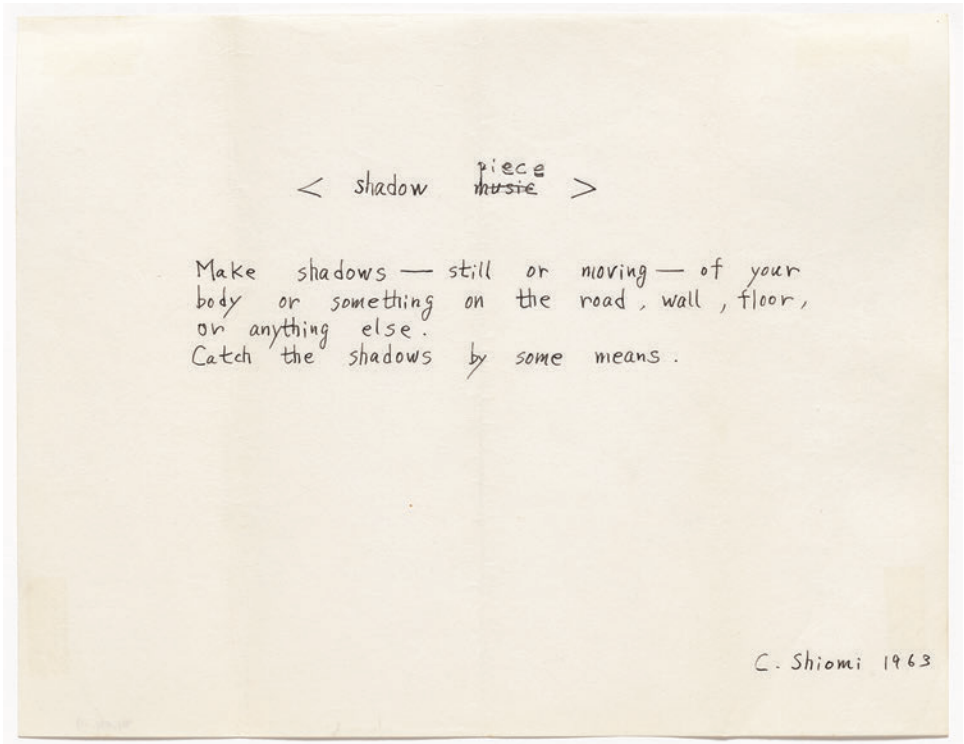 < shadow music piece >
Make shadows — still or moving — of your
body or something on the road , wall , floor,
or anything else .
Catch the shadows by some means .
C. Shiomi 1963